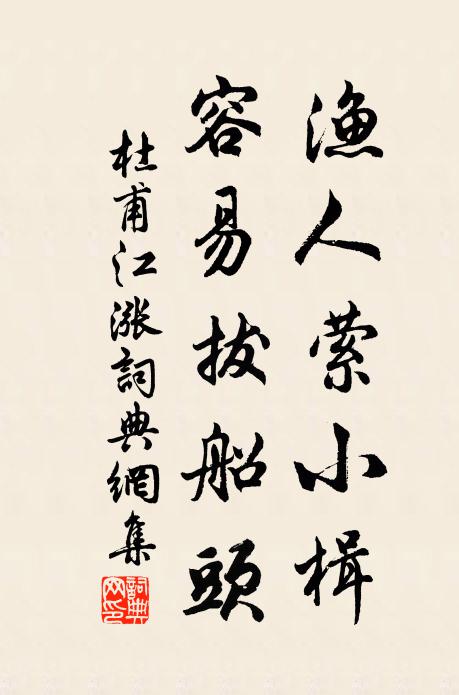 漁人縈小楫
容易拔船頭
杜甫江漲詞典網集
詞典網印